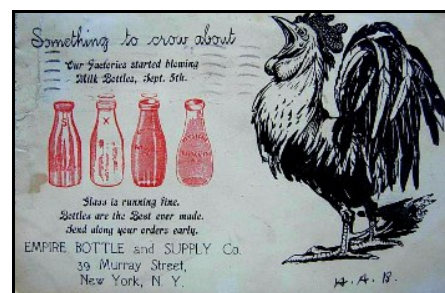 Something to crow about
Our Factories started blowing
Milk Bottles, Sept. 5th.
S
X
Glass is running fine.
Bottles are the Best ever made.
Send along your orders early.
EMPIRE BOTTLE and SUPPLY Co.
39 Murray Street,
New York, N. Y.
H. A. B.